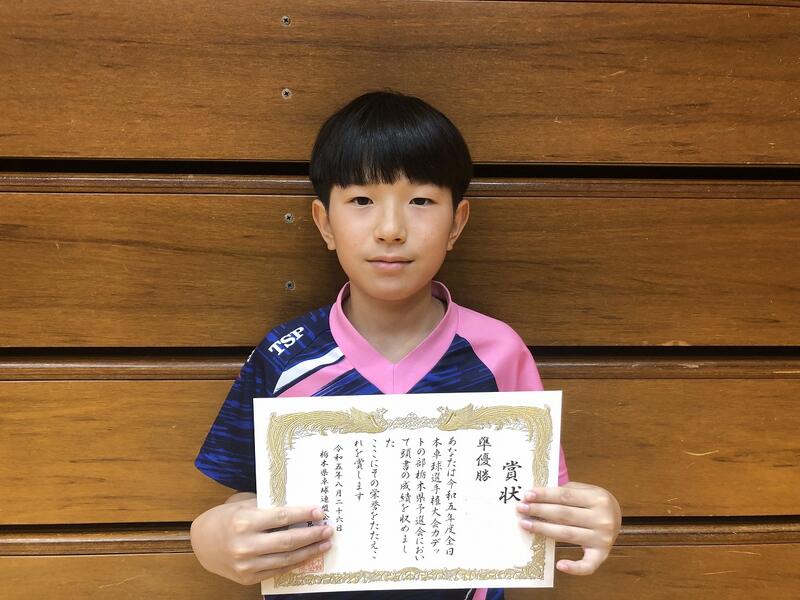 TSP
賞状
準優勝
あなたは令和五年度全日
本卓球選手権大会カデッ
トの部栃木県予選会におい
て頭書の成績を収めまし
た
ここにその栄誉をたたえこ
れを賞します
令和五年八月二十六日
栃木県卓球連盟会